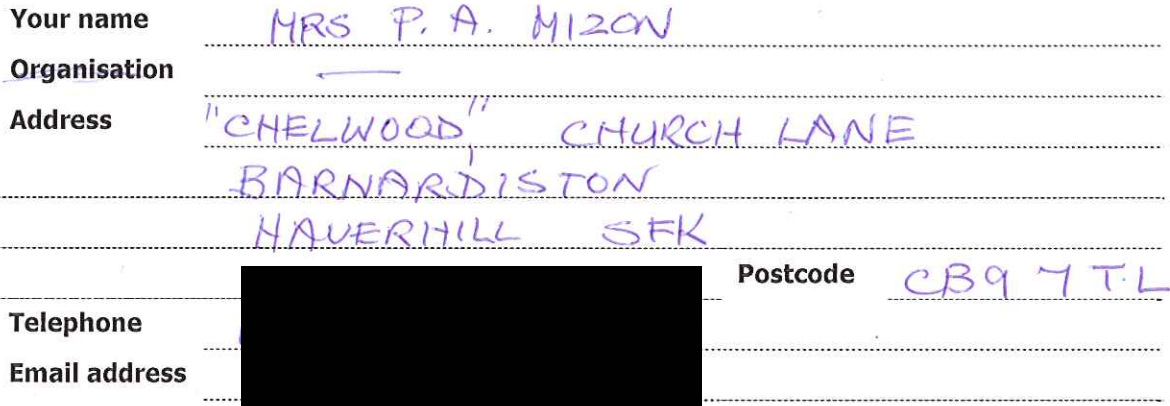 Your name MRS P. A. MIZON
Organisation —
Address "CHELWOOD", CHURCH LANE
BARNARDISTON
HAVERHILL SFK
Postcode CB9 7TL
Telephone
Email address